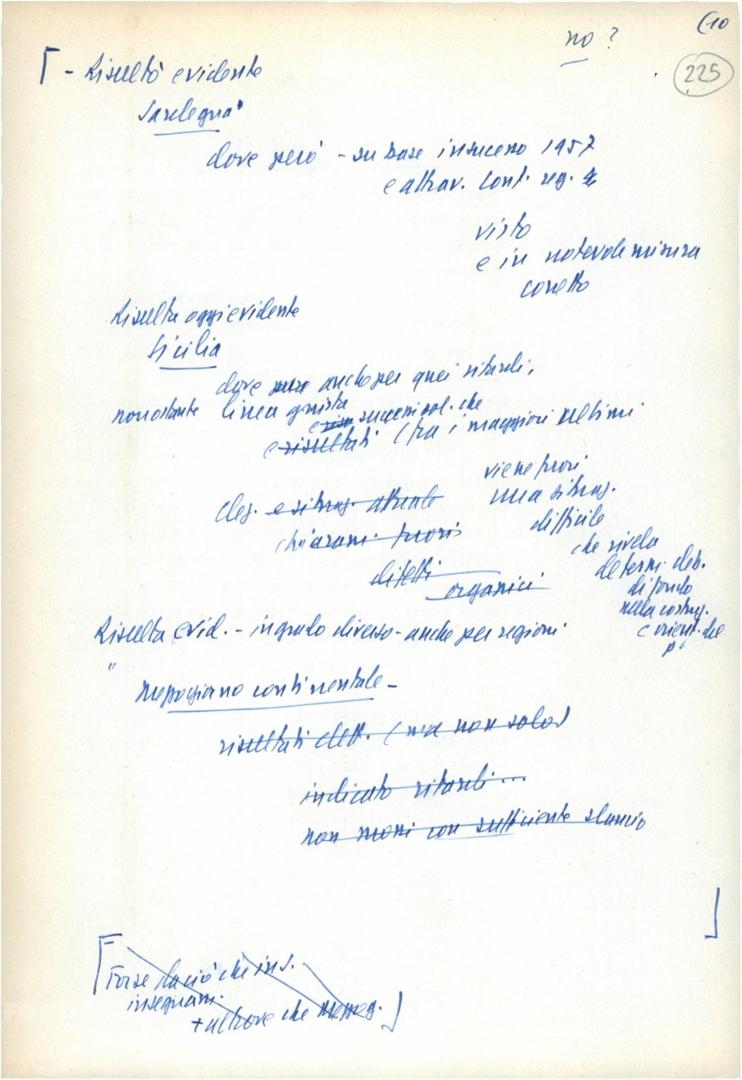 (10
no?
225
- Risultò evidente
Sardegna
dove però - su base insuccesso 1957
e attrav. conf. reg.
visto
e in notevole misura
corretto
Risulta oggi evidente
Sicilia
dove anche per quei ritardi,
nonostante linea giusta
e successi sol. che
e risultati (fra i maggiori ultimi
viene fuori
cles. e situaz. attuale una situaz.
chiaram. fuori difficile
che rivela
difetti determ. deb.
organici di fondo
nella costruz.
e orient. del
p.
Risulta evid. - in grado diverso - anche per regioni
"
Mezzogiorno continentale -
risultati elett. (ma non solo)
indicato ritardi...
non mossi con sufficiente slancio
Forse da ciò che ins.
insegnam.
+ altrove che Mezzog.